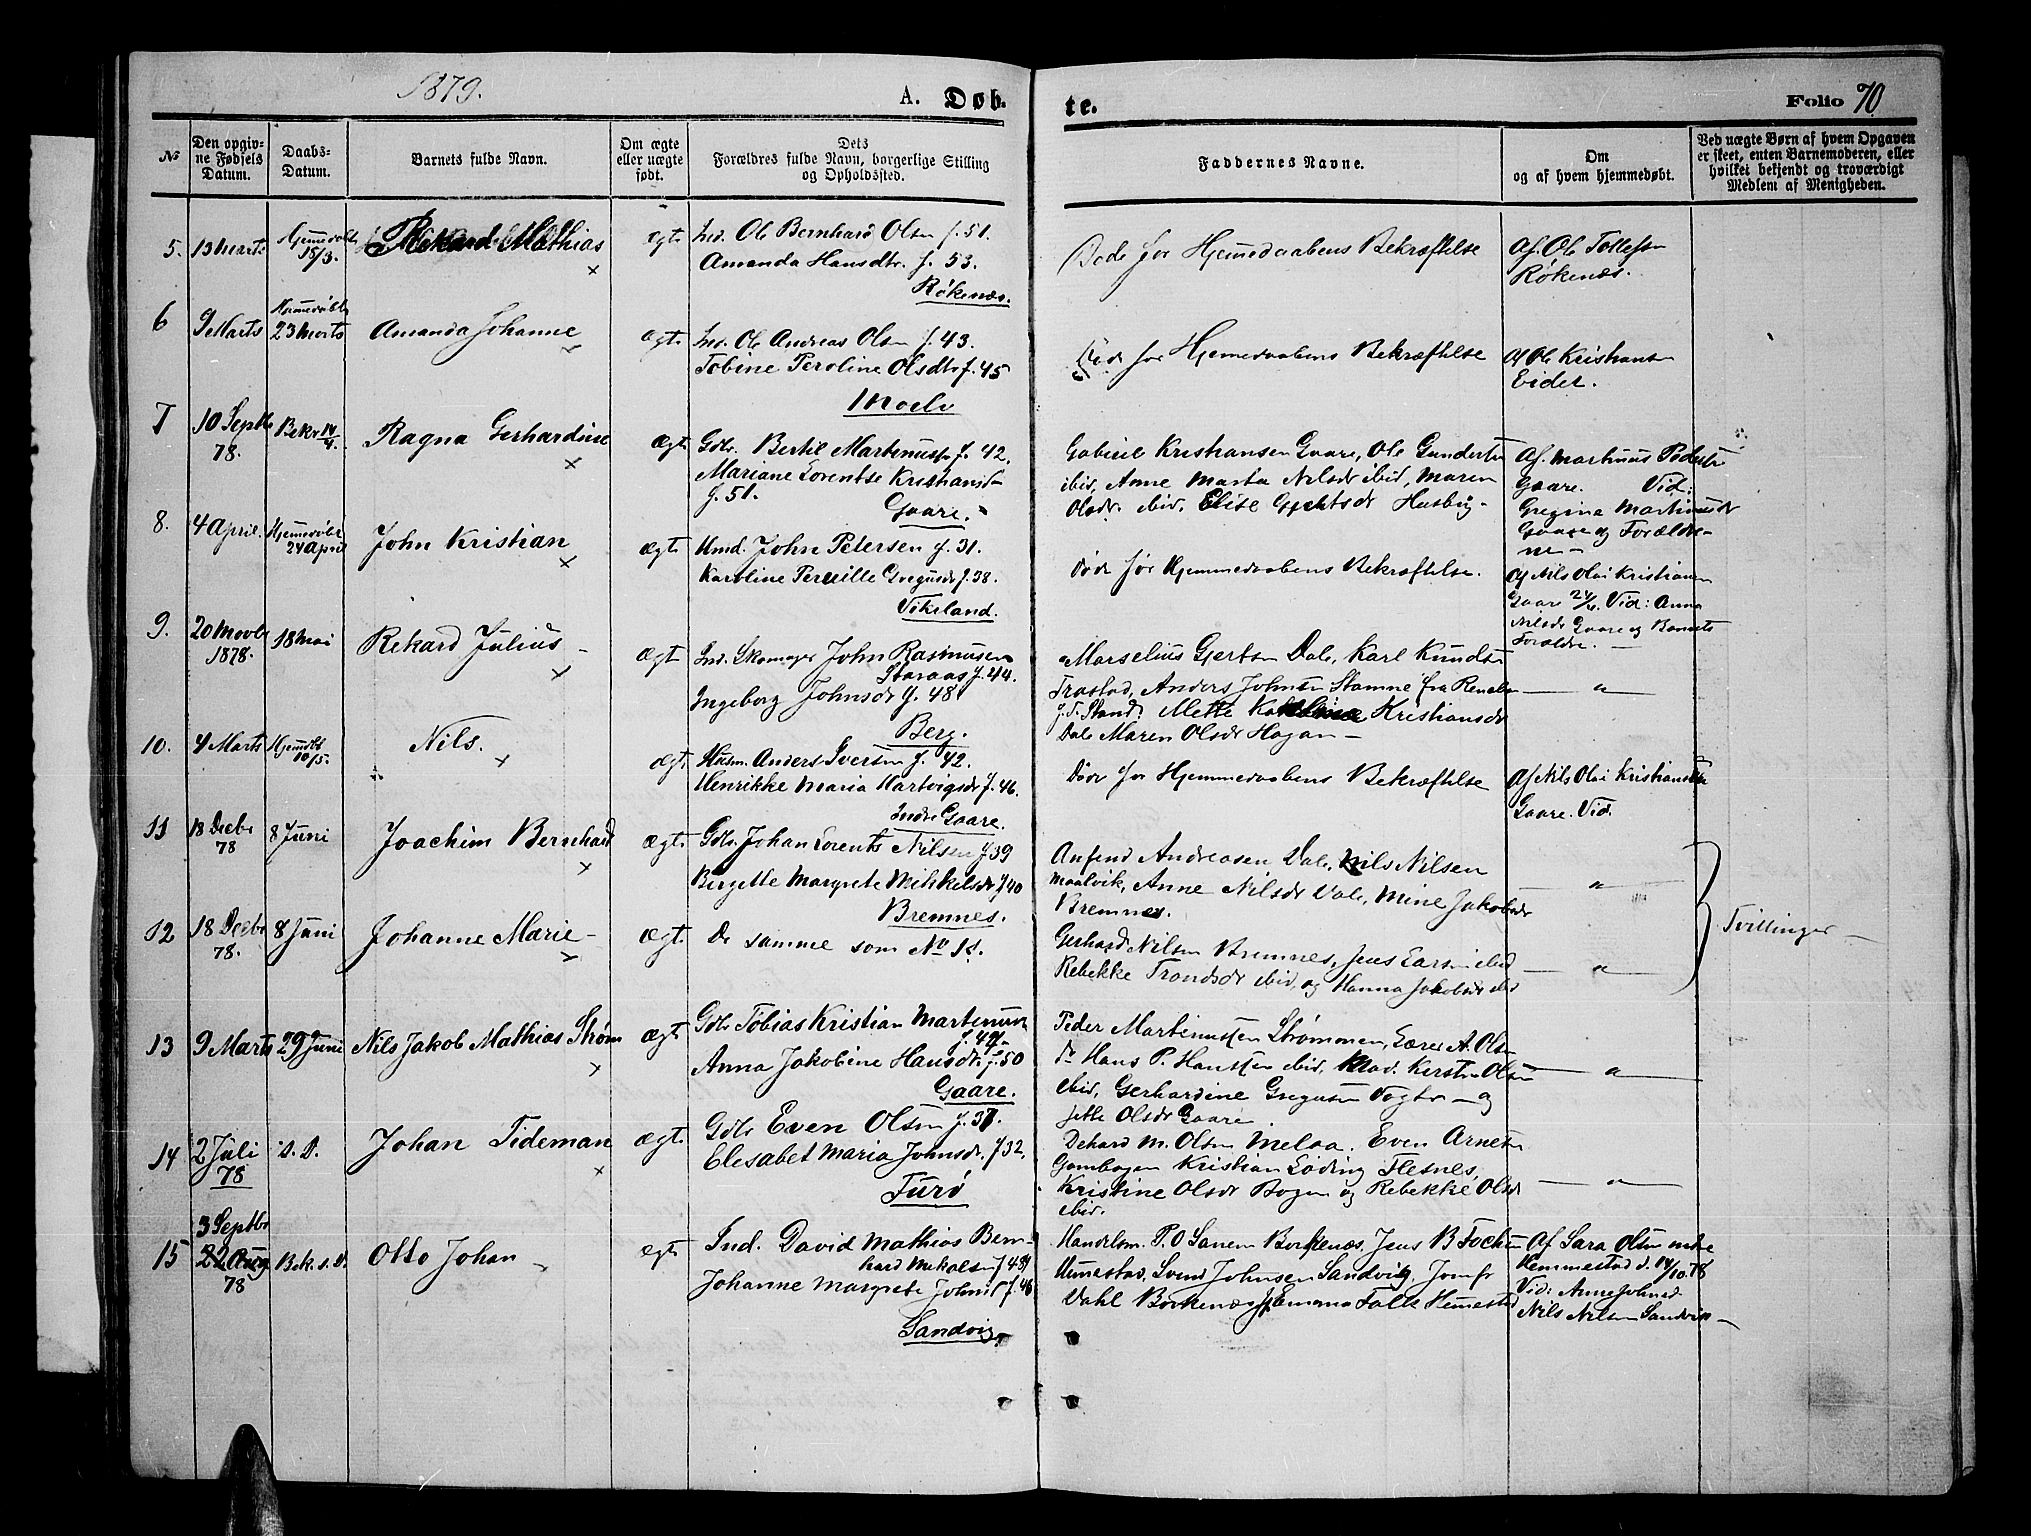 1879.
A. Døb-
te.
Folio 70
No
Den opgiv-
ne Fødsels
Datum.
Daabs-
Datum.
Barnets fulde Navn.
Om ægte
eller uægte
født.
Dets
Forældres fulde Navn, borgerlige Stilling
og Opholdssted.
Faddernes Navne.
Om
og af hvem hjemmedøbt.
Ved uægte Børn af hvem Opgaven
er skeet, enten Barnemoderen, eller
hvilket bekjendt og troværdigt
Medlem af Menigheden.
5. 13 Marts
15/3.
Rikard Mathias
ægt.
Ind. Ole Bernhard Olsen f. 51.
Amanda Hansdtr. f. 53.
Røkenæs.
Døde før Hjemmedaabens Bekræftelse
Af. Ole Tollefsen
Røkenæs.
6
9 Marts
Hjemmedøbt
23 Marts
Amanda Johanne
ægt.
Ind. Ole Andreas Olsen f. 43.
Tobine Peroline Olsdtr f. 45
Moelv
Død før Hjemmedaabens Bekræftelse
Af Ole Kristiansen
Eidet.
7
10 Septbr
78.
Bekr 14/4.
Ragna Gerhardine
ægt.
Gdbr. Bertil Martinussen f. 42.
Mariane Lorentse Kristiansdr
f. 51.
Gaare.
Gabriel Kristiansen Gaare, Ole Gundersen
ibid, Anne Marta Nilsdr ibid, Maren
Olsdr ibid. Elise Gjertsdr Husby -
Af. Martinus Pedersen
Gaare. Vid:
Gregina Martinusdr
Gaare og Forældre-
ne -
8.
4 April.
Hjemmedøbt
24 April
John Kristian
ægt.
Hmd. John Petersen f. 31.
Karoline Pernille Gregusdr f. 38.
Vikeland.
Død før Hjemmedaabens Bekræftelse.
Af Nils Olai Kristiansen
Gaare 24/4. Vid: Anna
Nilsdr Gaare og Barnets
Forældre. -
9.
20 Novbr
1878.
18 Mai
Rekard Julius -
ægt.
Ind. Skomager John Rasmussen
Storaas f. 44.
Ingeborg Johnsdr f. 48
Berg.
Marselius Gjertsen Dale, Karl Knudsen
Trastad, Anders Johnsen Stamne fra
Mette Kristiansdr
Dale Maren Olsdr Hagan -
— " —
10.
4 Marts
Hjemdbt
10/5.
Nils.
ægt.
Husm. Anders Iversen f. 42.
Henrikke Maria Hartvigsdr f. 46.
Indre Gaare.
Død før Hjemmedaabens Bekræftelse
Af Nils Olai Kristiansen
Gaare. Vid.
11
18 Decbr
78
8 Juni
Joachim Bernhard
ægt.
Gdbr. Johan Lorents Nilsen f. 39
Birgette Margrete Mikkelsdr f. 40
Bremnes.
Anfind Andreasen Dale, Nils Nilsen
Maalvik, Anne Nilsdr Dale, Mine Jakobsdr
Bremnes.
— " —
12
18 Decbr
78.
8 Juni
Johanne Marie -
ægt.
De samme som No 11.
Gerhard Nilsen Bremnes, Jens Larsen ibid
Rebekke Trondsdr ibid, og Hanna Jakobsdr ibid
— " —
Tvillinger —
13
9 Marts
29 Juni
Nils Jakob Mathias Strøm
ægt.
Gdbr Tobias Kristian Martinussen
f. 49.
Anna Jakobine Hansdtr f. 50
Gaare.
Peder Martinussen Strømmen, Lærer A. Olsen
Hans P. Hanssen ibid, Mad. Kerstine Olsen
ibid, Gerhardine Gregusen Vogter og
Jette Olsdr Gaare
— " —
14
2 Juli
78
s. D.
Johan Tideman
ægt.
Gdbr Even Olsen f. 37.
Elesabet Maria Johnsdr. f. 32.
Furø
Dekard M. Olsen Melaa. Even Arnesen
Gambogen Kristian Løding Flesnes,
Kristine Olsdr Bogen og Rebekke Olsdr
ibid.
— " —
15
3 Septbr
22 Aug
78
Bek. s. D.
Otto Johan
ægt.
Ind. David Mathias Bern-
hard Mikalsen f. 48
Johanne Margrete Johnsd f. 46
Sandvig
Handelsm. P. O Sanem Borkenæs, Jens B Fochsen
Hemmestad, Svend Johnsen Sandvig, Jomfr
Dahl Borkenæs, Emma Falk Hemmestad
Af Sara Olsen
Hemmestad d. 14/10.78
Vid: Anne Johnsd
Nils Nilsen Sandvik